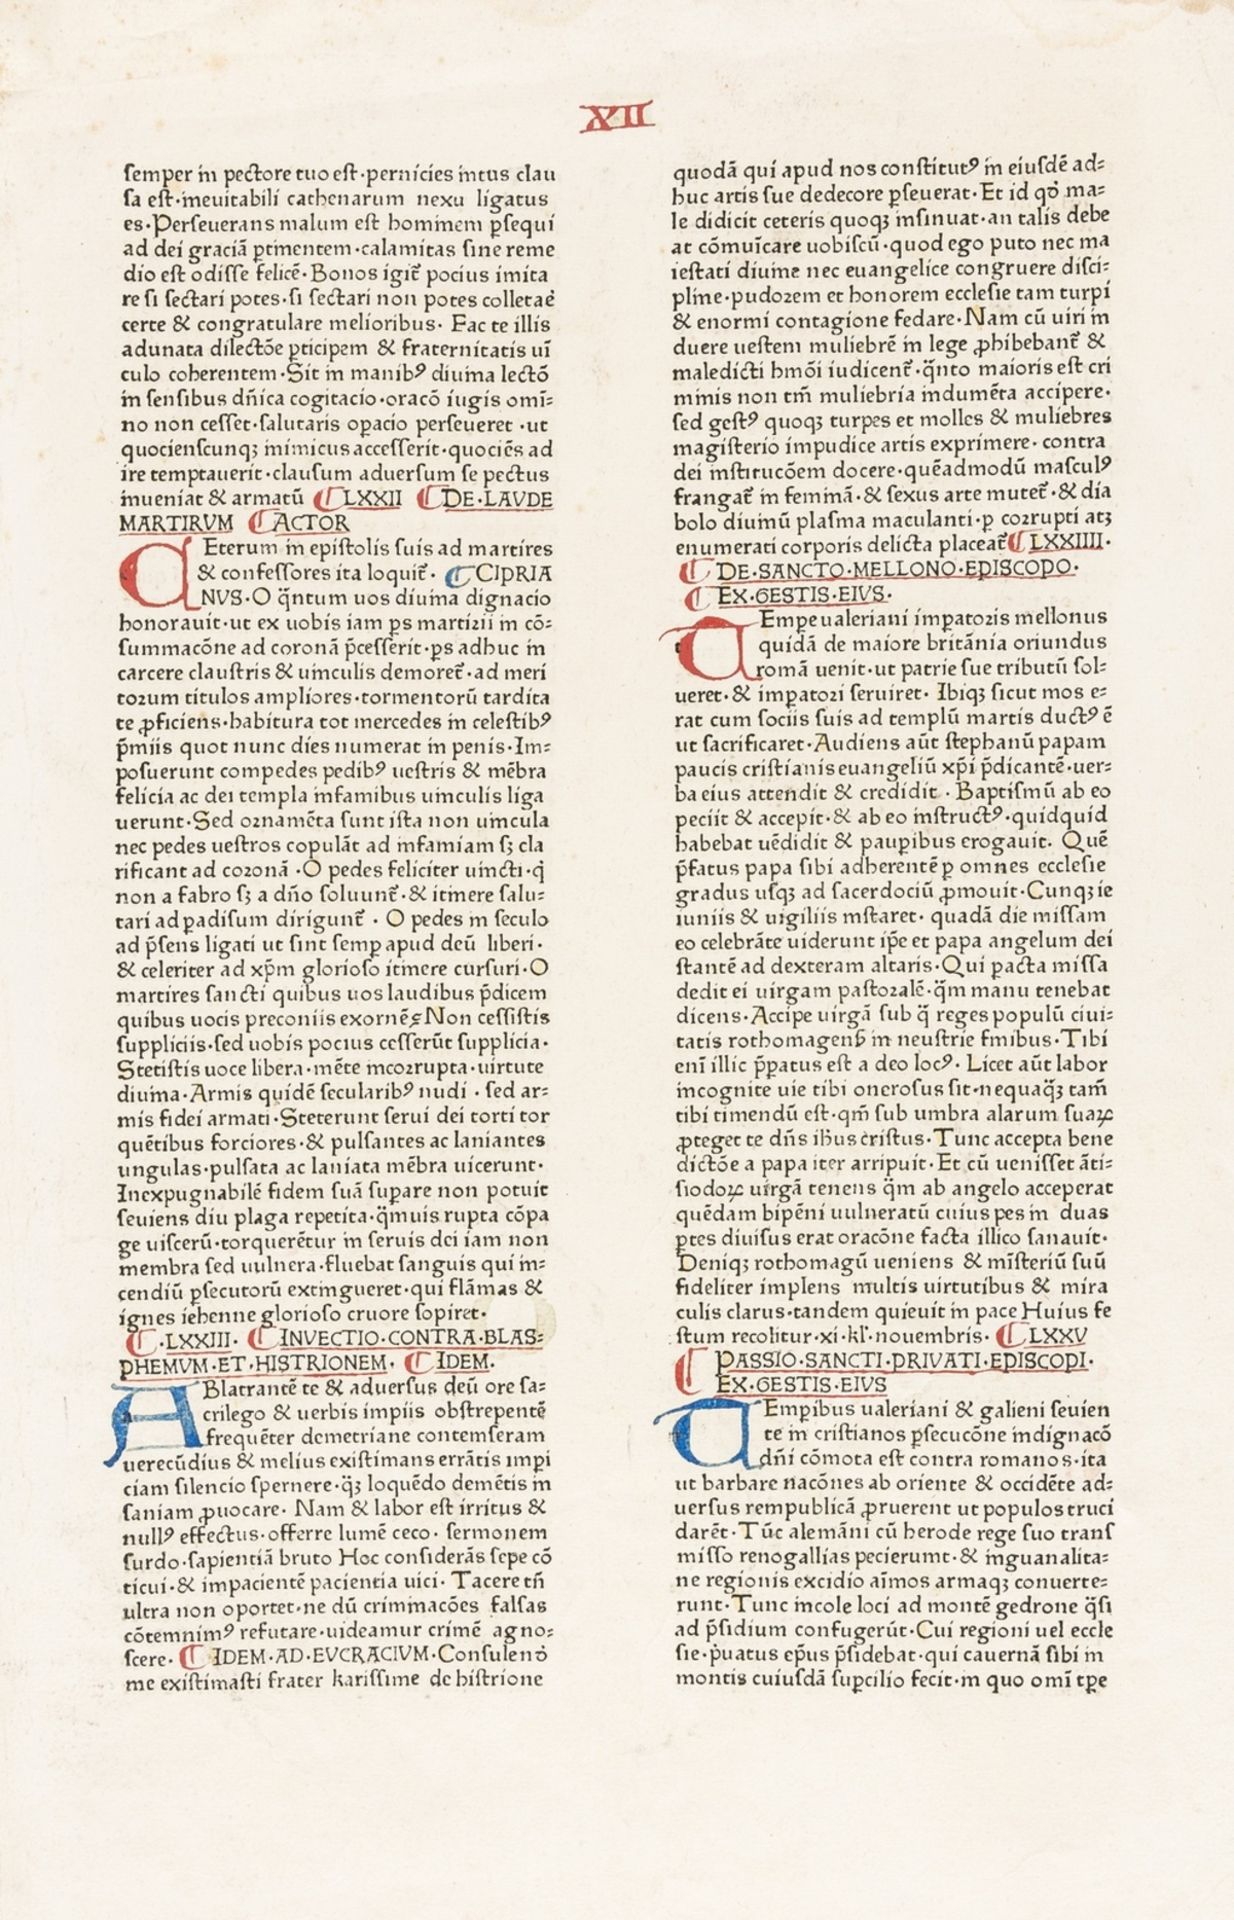 XII
semper in pectore tuo est·pernicies intus clau
sa est·ineuitabili cathenarum nexu ligatus
es·Perseuerans malum est hominem ꝑsequi
ad dei graciã ꝑtinentem·calamitas sine reme
dio est odisse felicẽ·Bonos igit᷑ pocius imita
re si sectari potes·si sectari non potes colletaë
certe & congratulare melioribus· Fac te illis
adunata dilectõe ꝑticipem & fraternitatis uĩ
culo coherentem·Sit in manibꝰ diuina lectõ
in sensibus dñica cogitacio·oracõ iugis omĩ=
no non cesset·salutaris oꝑacio perseueret ·ut
quocienscunqꝫ inimicus accesserit·quociẽs ad
ire temptauerit·clausum aduersum se pectus
inueniat & armatũ ¶LXXII ¶DE·LAVDE
MARTIRVM ¶ACTOR
CEterum in epistolis suis ad martires
& confessores ita loquit᷑· ¶CIPRIA
NVS·O q̃ntum uos diuina dignacio
honorauit·ut ex uobis iam ꝑs martirii in cõ=
summacõne ad coronã p̃cesserit·ꝑs adhuc in
carcere claustris & uinculis demoret᷑·ad meri
torum titulos ampliores·tormentorũ tardita
te ꝓficiens·habitura tot mercedes in celestibꝰ
p̃miis quot nunc dies numerat in penis·Im=
posuerunt compedes pedibꝰ uestris & mẽbra
felicia ac dei templa infamibus uinculis liga
uerunt·Sed ornamẽta sunt ista non uincula
nec pedes uestros copulãt ad infamiam sꝫ cla
rificant ad coronã ·O pedes feliciter uincti·q̇
non a fabro sꝫ a dño soluunt᷑·& itinere salu=
tari ad ꝑadisum dirigunt᷑ · O pedes in seculo
ad p̃sens ligati ut sint semꝑ apud deũ liberi·
& celeriter ad xp̃m glorioso itinere cursuri·O
martires sancti quibus uos laudibus p̃dicem
quibus uocis preconiis exornẽ Non cessistis
suppliciis·sed uobis pocius cesserũt supplicia·
Stetistis uoce libera·mẽte incorrupta·uirtute
diuina·Armis quidẽ secularibꝰ nudi · sed ar=
mis fidei armati·Steterunt serui dei torti tor
quẽtibus forciores·& pulsantes ac laniantes
ungulas·pulsata ac laniata mẽbra uicerunt·
Inexpugnabilẽ fidem suã suꝑare non potuit
seuiens diu plaga repetita·q̃muis rupta cõpa
ge uiscerũ·torquerẽtur in seruis dei iam non
membra sed uulnera·fluebat sanguis qui in=
cendiũ ꝑsecutorũ extingueret·qui flãmas &
ignes iehenne glorioso cruore sopiret·
¶·LXXIII· ¶INVECTIO·CONTRA·BLAS=
PHEMVM·ET·HISTRIONEM· ¶IDEM·
ABlatrantẽ te & aduersus deũ ore sa=
crilego & uerbis impiis obstrepentẽ
frequẽter demetriane contemseram
uerecũdius & melius existimans errãtis impi
ciam silencio spernere·q̃ꝫ loquẽdo demẽtis in
saniam ꝓuocare· Nam & labor est irritus &
nullꝰ effectus·offerre lumẽ ceco· sermonem
surdo·sapientiã bruto Hoc considerãs sepe cõ
ticui·& impacientẽ pacientia uici· Tacere tñ
ultra non oportet·ne dũ criminacões falsas
cõtemnimꝰ refutare·uideamur crimẽ agno=
scere· ¶IDEM·AD·EVCRACIVM·Consulenḋ
me existimasti frater karissime de histrione
quodã qui apud nos constitutꝰ in eiusdẽ ad=
huc artis sue dedecore ꝑseuerat·Et id qȯ ma=
le didicit ceteris quoqꝫ insinuat·an talis debe
at cõmuĩcare uobiscũ·quod ego puto nec ma
iestati diuine nec euangelice congruere disci=
pline·pudorem et honorem ecclesie tam turpi
& enormi contagione fedare·Nam cũ uiri in
duere uestem muliebrẽ in lege ꝓhibebant᷑ &
maledicti hmõi iudicent᷑·q̃nto maioris est cri
minis non tm̃ muliebria indumẽta accipere·
sed gestꝰ quoqꝫ turpes et molles & muliebres
magisterio impudice artis exprimere· contra
dei institucõem docere·quẽadmodũ masculꝰ
frangat᷑ in feminã·& sexus arte mutet᷑·& dia
bolo diuinũ plasma maculanti·ꝑ corrupti atꝫ
enumerati corporis delicta placeat᷑ ¶LXXIIII·
¶DE·SANCTO·MELLONO·EPISCOPO·
¶EX·GESTIS·EIVS·
TEmpe ualeriani imꝑatoris mellonus
quidã de maiore britãnia oriundus
romã uenit·ut patrie sue tributũ sol=
ueret·& imꝑatori seruiret· Ibiqꝫ sicut mos e=
rat cum sociis suis ad templũ martis ductꝰ ẽ
ut sacrificaret·Audiens aũt stephanũ papam
paucis cristianis euangeliũ xp̃i p̃dicantẽ·uer=
ba eius attendit & credidit · Baptismũ ab eo
peciit & accepit·& ab eo instructꝰ·quidquid
habebat uẽdidit & pauꝑibus erogauit· Quẽ
p̃fatus papa sibi adherentẽ ꝑ omnes ecclesie
gradus usqꝫ ad sacerdociũ ꝓmouit·Cunqꝫ ie
iuniis & uigiliis instaret· quadã die missam
eo celebrãte uiderunt ip̃e et papa angelum dei
stantẽ ad dexteram altaris·Qui ꝑacta missa
dedit ei uirgam pastoralẽ·q̃m manu tenebat
dicens·Accipe uirgã sub q̃ reges populũ ciui=
tatis rothomagenß in neustrie finibus·Tibi
enĩ illic p̃ꝑatus est a deo locꝰ· Licet aũt labor
incognite uie tibi onerosus sit·nequaq̃ꝫ tam̃
tibi timendũ est·qm̃ sub umbra alarum suaꝝ
ꝓteget te dñs ih̃us cristus·Tunc accepta bene
dictõe a papa iter arripuit·Et cũ uenisset ãti=
siodoꝝ uirgã tenens q̃m ab angelo acceperat
quẽdam bipẽni uulneratũ cuius pes in duas
ꝑtes diuisus erat oracõne facta illico sanauit·
Deniqꝫ rothomagũ ueniens & mĩsteriũ suũ
fideliter implens multis uirtutibus & mira
culis clarus·tandem quieuit in pace Huius fe
stum recolitur·xi·kl̃·nouembris· ¶LXXV
¶PASSIO·SANCTI·PRIVATI·EPISCOPI·
EX·GESTIS·EIVS
TEmꝑibus ualeriani & galieni seuien
te in cristianos ꝑsecucõne indignacõ
dñi cõmota est contra romanos·ita
ut barbare nacõnes ab oriente & occidẽte ad=
uersus rempublicã ꝓruerent ut populos truci
darẽt·Tũc alemãni cũ herode rege suo trans
misso reno gallias pecierunt·& in guanalita=
ne regionis excidio aĩmos armaqꝫ conuerte=
runt·Tunc incole loci ad montẽ gedrone q̃si
ad p̃sidium confugerũt·Cui regioni uel eccle
sie·p̊uatus ep̃us p̃sidebat·qui cauernã sibi in
montis cuiusdã suꝑcilio fecit·in quo omĩ tꝑe